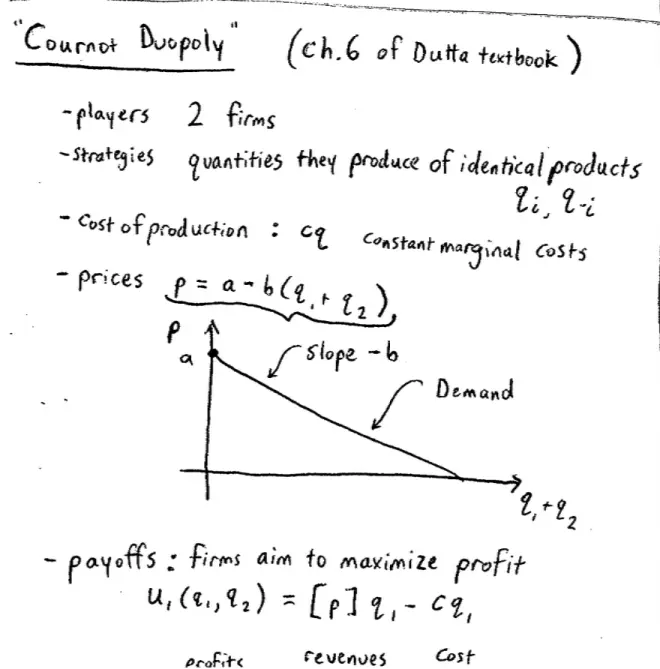 "Cournot Duopoly" (Ch.6 of Dutta textbook)
- players 2 firms
- Strategies quantities they produce of identical products
qᵢ, q₋ᵢ
- Cost of production : cq constant marginal costs
- prices p = a - b(q₁ + q₂)
P
a
slope -b
Demand
q₁+q₂
- payoffs : firms aim to maximize profit
u₁(q₁,q₂) = [p] q₁ - cq₁
profits revenues cost